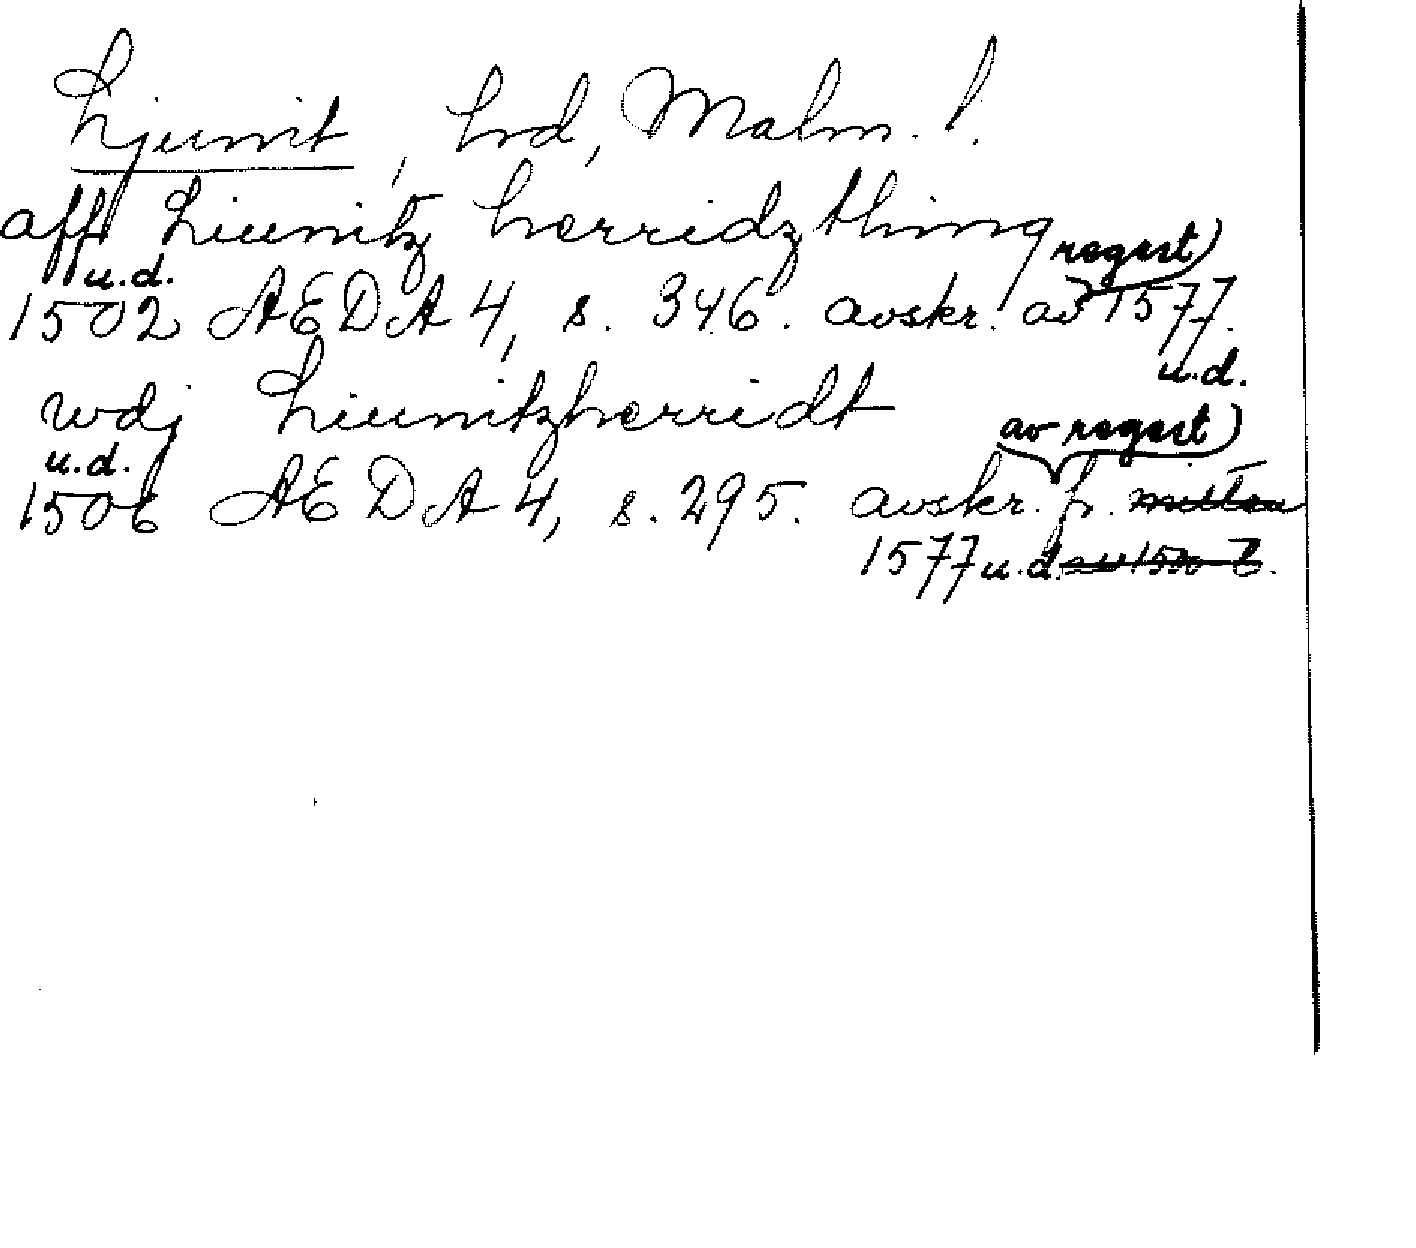 Ljunit, hrd, Malm. l.
aff Liunitz herridz thing
u.d. regest)
1502 AEDA 4, s. 346. avskr. av 1577.
u.d.
wdj Liunitzherridt
u.d. av regest)
1506 AEDA 4, s. 295. avskr. fr. mitten
1577 u.d. av 1500-t.